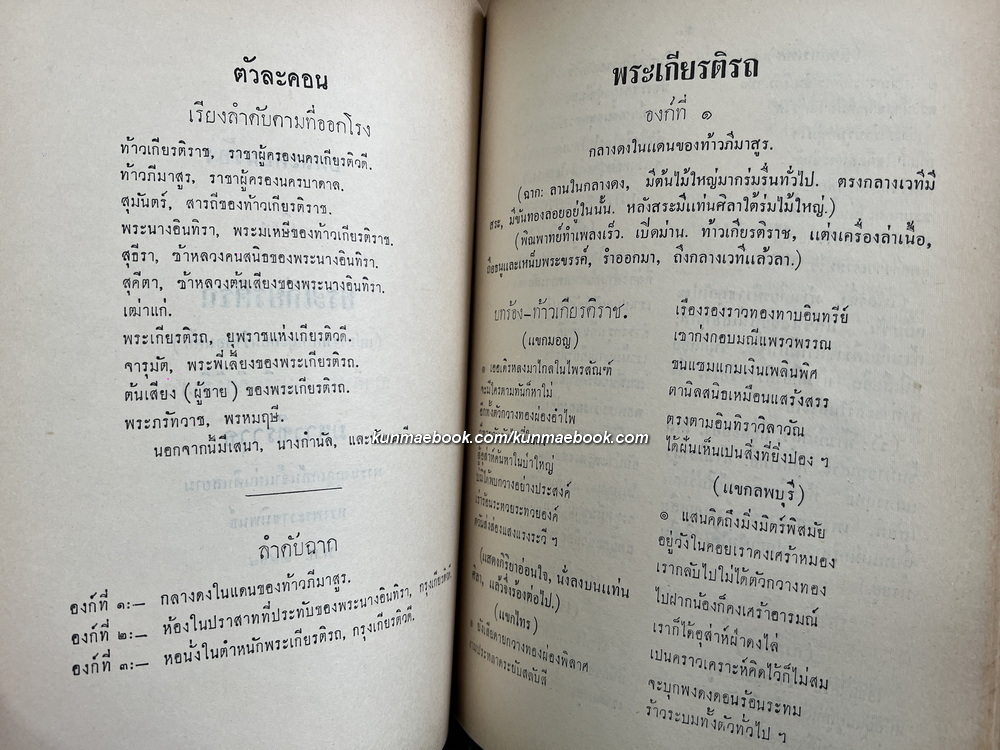 ตัวละคอน
เรียงลำดับตามที่ออกโรง
ท้าวเกียรติราช, ราชาผู้ครองนครเกียรติวดี.
ท้าวภีมาสูร, ราชาผู้ครองนครบาดาล.
สุมันตร์, สารถีของท้าวเกียรติราช.
พระนางอินทิรา, พระมเหษีของท้าวเกียรติราช.
สุธีรา, ข้าหลวงคนสนิธของพระนางอินทิรา.
สุคีตา, ข้าหลวงต้นเสียงของพระนางอินทิรา.
เฒ่าแก่.
พระเกียรติรถ, ยุพราชแห่งเกียรติวดี.
จารุมัติ, พระพี่เลี้ยงของพระเกียรติรถ.
ต้นเสียง (ผู้ชาย) ของพระเกียรติรถ.
พระภรัทวาช, พรหมฤษี.
นอกจากนี้มีเสนา, นางกำนัล, และ
ลำดับฉาก
องก์ที่ ๑:— กลางดงในแดนของท้าวภีมาสูร.
องก์ที่ ๒:— ห้องในปราสาทที่ประทับของพระนางอินทิรา, กรุงเกียรติวดี.
องก์ที่ ๓:— หอนั่งในตำหนักพระเกียรติรถ, กรุงเกียรติวดี.
พระเกียรติรถ
องก์ที่ ๑
กลางดงในแดนของท้าวภีมาสูร.
(ฉาก: ลานในกลางดง, มีต้นไม้ใหญ่มากร่มรื่นทั่วไป. ตรงกลางเวทีมี
สระ, มีขันทองลอยอยู่ในนั้น. หลังสระมีแท่นศิลาใต้ร่มไม้ใหญ่.)
(พิณพาทย์ทำเพลงเร็ว. เปิดม่าน. ท้าวเกียรติราช, แต่งเครื่องล่าเนื้อ,
ถือธนูและเหน็บพระขรรค์, รำออกมา, ถึงกลางเวทีแล้วลา.)
บทร้อง–ท้าวเกียรติราช.
(แขกมอญ)
๑ เธอเดิรหลงมาไกลในไพรสัณฑ์
จะมีใครตามทันก็หาไม่
อีกทั้งตัวกวางทองผ่องอำไพ
สู้อุส่าห์ค้นหาในป่าใหญ่
บ่มิได้พบกวางอย่างประสงค์
เร่าร้อนระหวยระทวยองค์
ตวันส่องแสงแรงระวี ฯ
(แสดงกิริยาอ่อนใจ, นั่งลงบนแท่น
ศิลา, แล้วจึ่งร้องต่อไป.)
(แขกไทร)
๑ ยังเสียดายกวางทองผ่องพิลาศ
งามประหลาดระยับสลับสี
เรืองรองราวทองทาบอินทรีย์
เขากิ่งกอบมณีแพรวพรรณ
ขนแซมแกมเงินเพลินพิศ
ตานิลสนิธเหมือนแสร้งสรร
ตรงตามอินทิราวิลาวัณ
ได้ฝันเห็นเปนสิ่งที่ยิ่งปอง ฯ
(แขกลพบุรี)
๑ แสนคิดถึงมิ่งมิตร์พิสมัย
อยู่วังในคอยเราคงเศร้าหมอง
เรากลับไปไม่ได้ตัวกวางทอง
ไปฝากน้องก็คงเศร้าอารมณ์
เราก็ได้อุส่าห์ฝ่าดงไล่
เปนคราวเคราะห์คิดไว้ก็ไม่สม
จะบุกพงดงดอนร้อนระทม
ร้าวระบมทั้งตัวทั่วไป ฯ
kunmaebook.com/kunmaebook.com